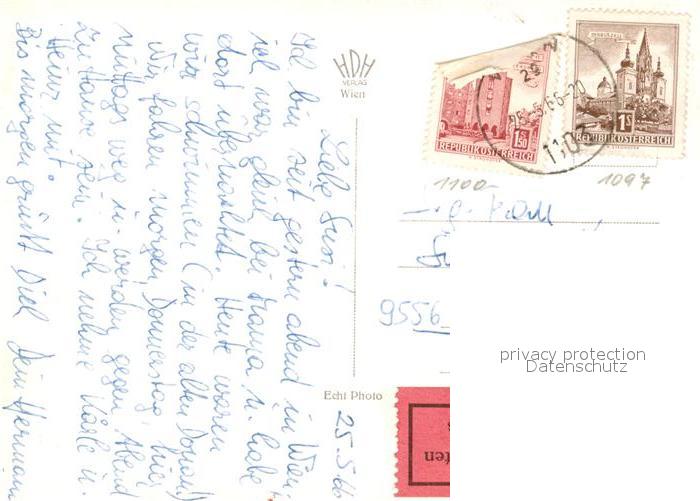 Liebe Susi!
Ich bin seit gestern abend in Wien,
ich war gleich bei Franza u. habe
dort übernachtet. Heute waren
wir schwimmen (in der alten Donau)
Wir fahren morgen, Donnerstag, hier
Mittags weg u. werden gegen Abend
zu Hause sein. Ich nehme Karli u.
Heinz mit.
Bis morgen grüßt Dich Dein Hermann
HDH
VERLAG
Wien
Echt Photo
25.5.66
REPUBLIK ÖSTERREICH
1S50
MARIAZELL
1S
REPUBLIK ÖSTERREICH
WIEN
25.5.66-20
110
1100
1097
9556
privacy protection
Datenschutz